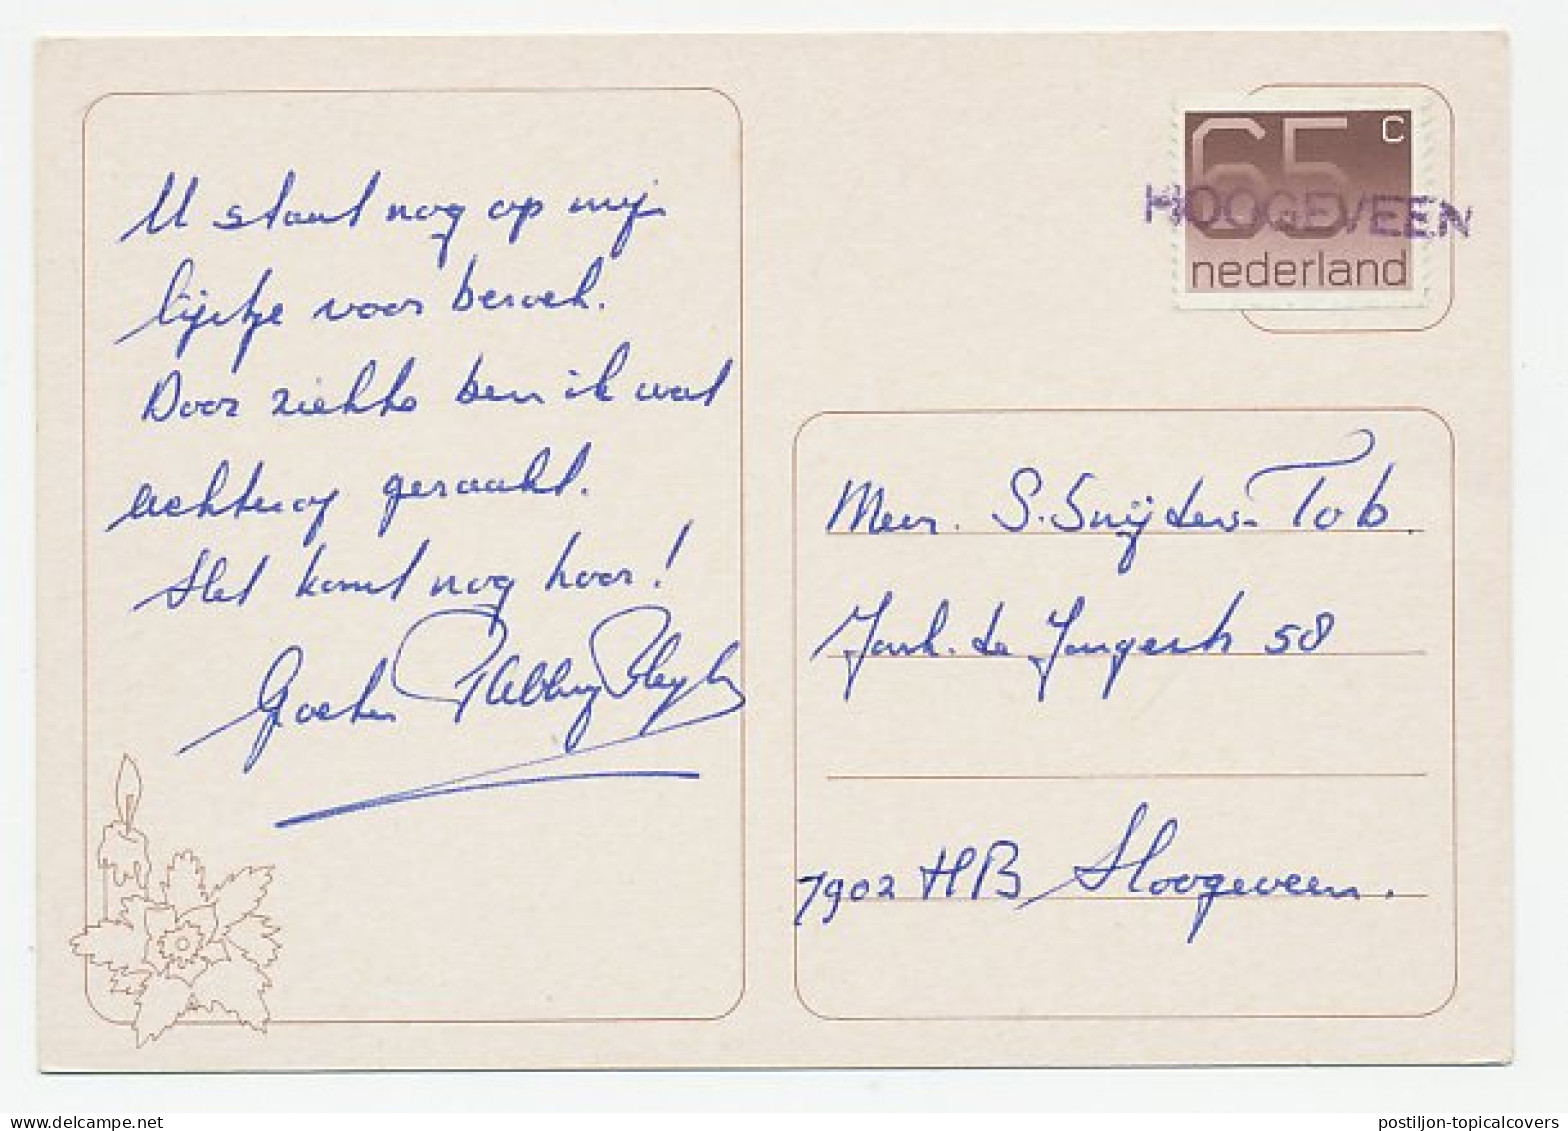 U staat nog op mijn
lijstje voor bezoek.
Door ziekte ben ik wat
achterop geraakt.
Het komt nog hoor!
Groeten
65 c
nederland
HOOGEVEEN
Mevr. S. Snijders-Tob.
Jonk. de Jongestr 58
7902 HB Hoogeveen.
postiljon-topicalcovers